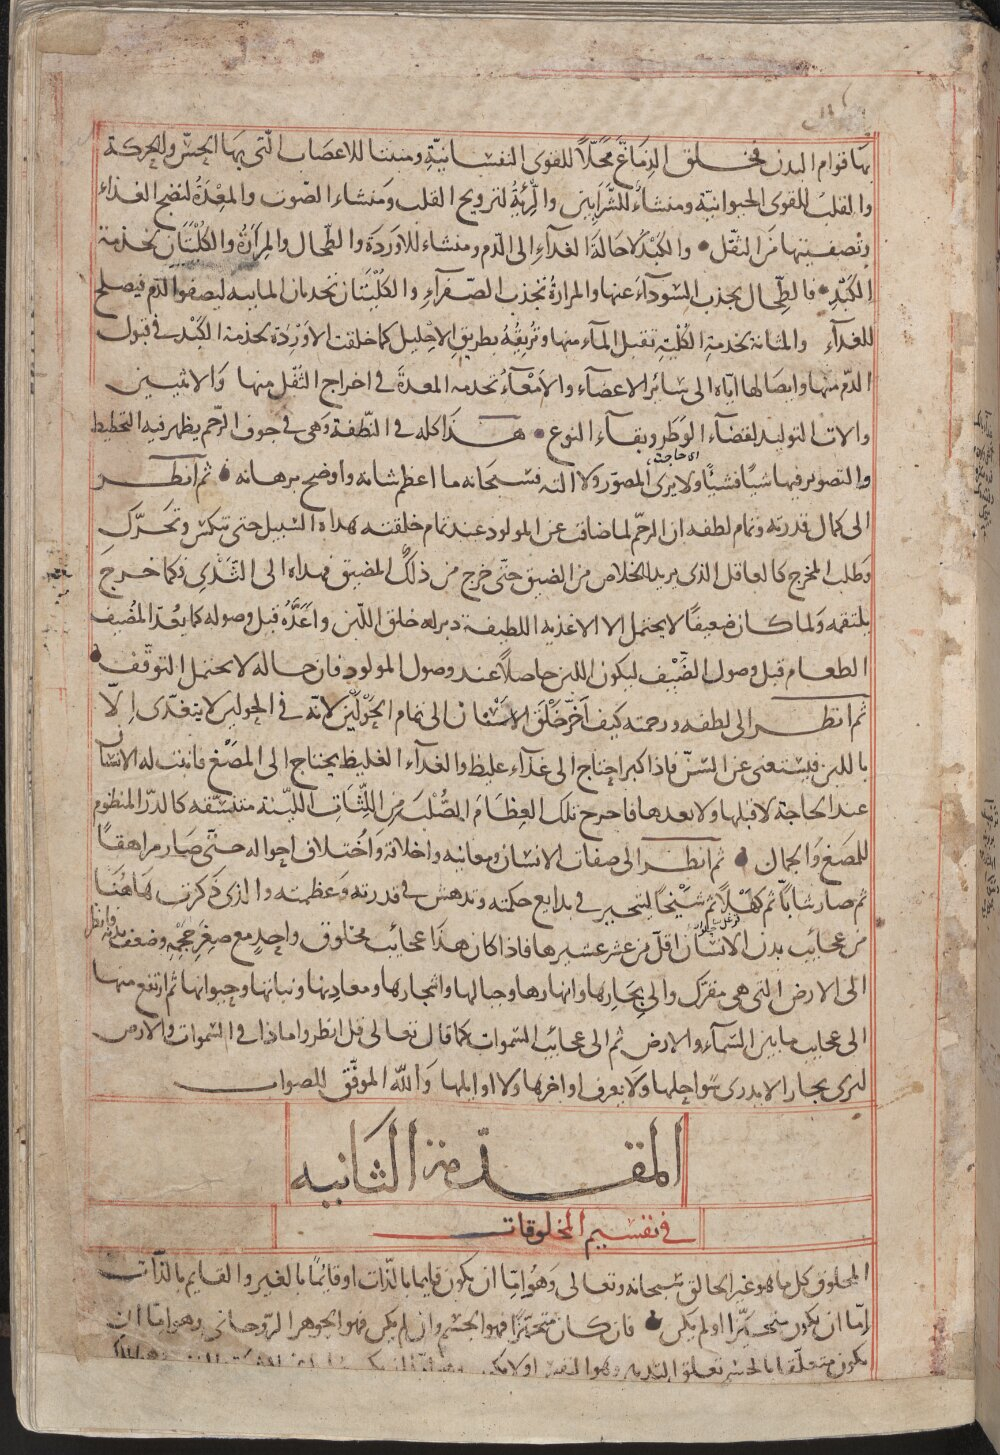 بها قوام البدن فخلق الدماغ محلّلا للقوى النفسانيّة ومنبتا للاعصاب الّتى بها الحسّ والحركة
والقلب للقوى الحيوانيّة ومنشاء للشّرايين والرّية لترويح القلب ومنشاء الصّوت والمعدة لنضج الغذاء
وتصفيتها من الثّقل والكبد لاحالة الغذاء الى الدّم ومنشاء للاوردة والطّحال والمرارة والكليتان بخدمة
الكبد فالطّحال يجذب السّودآء عنها والمرارة تجذب الصّفرآء والكليتان تخدمان المايية ليصفو الدّم فيصلح
للغدآء والمثانة بخدمة الكلية تقبل المآء منها وتريقه بطريق الاحليل كما خلقت الاوردة بخدمة الكبد فى قبول
الدّم منها وايصالها ايّاه الى سائر الاعضآء والامعآء تخدم المعدة فى اخراج الثّقل منها والانثيين
والات التوليد لقضآء الوطر وبقآء النوع هذا كله فى النّطفة وهى فى جوف الرّحم يظهر فيه التخطيط
والتصوير فيها شيئًا فشيئًا ولا يرى المصوّر ولا الته فسبحانه ما اعظم شانه واوضح برهانه ثم انظر
الى كمال قدرته وتمام لطفه ان الرحم لما ضاقت عن المولود عند تمام خلقته هداه السّبيل حتى تنكس وتحرّك
وطلب المخرج كالعاقل الذى يريد الخلاص من الضيق حتّى خرج من ذلك المضيق فهداه الى الثدى فكما خرج
يلتقمه ولما كان ضعيفًا لا يحتمل الا الاغذيه اللطيفة دبر له خلق اللبن واعدّه قبل وصوله كما يعدّ المضيف
الطعام قبل وصول الضّيف ليكون اللبن حاصلًا عند وصول المولود فان حاله لا يحتمل التوقّف
ثم انظر الى لطفه ورحمته كيف اخّر خلق الاسنان الى تمام الحولين لانّه فى الحولين لا يتغدّى الّا
باللبن فيستغنى عن السّنّ فاذا كبر احتاج الى غذآء غليظ والغدآء الغليظ يحتاج الى المضغ فانبت له الاسنان
عند الحاجة لا قبلها ولا بعدها فاخرج تلك العظام الصّلب من اللّثات اللّيّنة متنسّقه كالدرّ المنظوم
للمضغ والجمال ثم انظر الى صفات الانسان ومعانيه واخلاقه واختلاف احواله حتّى صار مراهقًا
ثم صار شابّا ثم كهلًا ثم شيخًا ليتحير فى بدايع حكمته وتدهش فى قدرته وعظمته والذى ذكرت هاهنا
من عجائب بدن الانسان اقلّ من عشر عشيرها فاذا كان هذا عجائب مخلوق واحد مع صغر حجمه وضعف بدنه فانظر
الى الارض التى هى مقرّك والى بحارها وانهارها وجبالها واشجارها ومعادنها ونباتها وحيوانها ثم ارتفع منها
الى عجايب ما بين السّمآء والارض ثم الى عجائب السّموات كما قال تعالى قل انظروا ماذا فى السّموات والارض
لترى بحارا لا يدرى سواحلها ولا يعرف اواخرها ولا اوايلها والله الموفّق للصواب
المقدّمة الثانيه
فى تقسيم المخلوقات
المخلوق كل ما هو غير الخالق سبحانه وتعالى وهو امّا ان يكون قايما بالذّات او قايمًا بالغير والقايم بالذّات
امّا ان يكون متحيّزا او لم يكن فان كان متحيّزا فهو الجسم وان لم يكن فهو الجوهر الرّوحانى وهو امّا ان
يكون متعلّقا بالجسم تعلق التدبير وهو النفس او لا يكون